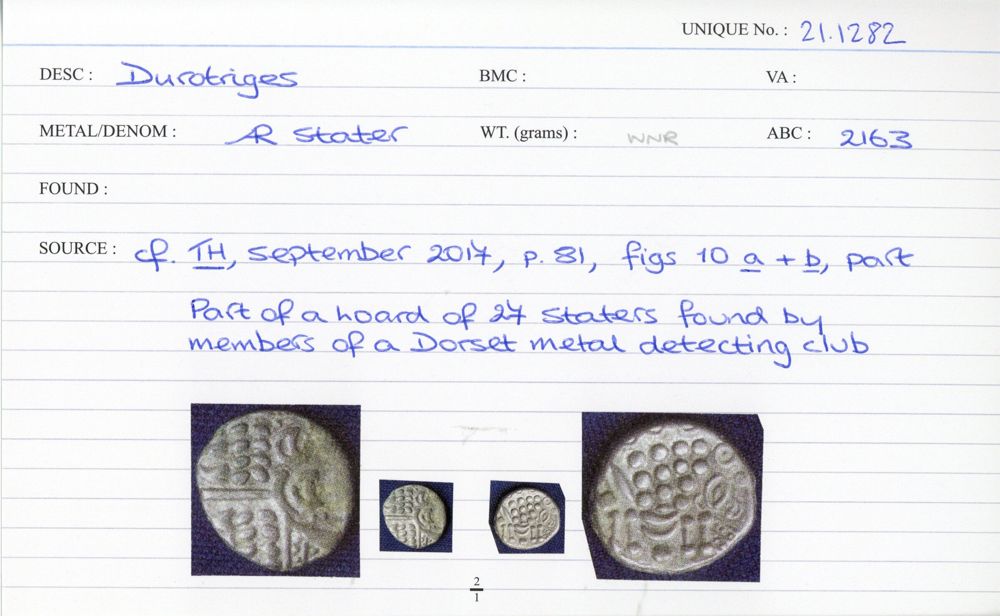 UNIQUE No. : 21.1282
DESC : Durotriges BMC : VA :
METAL/DENOM : AR stater WT. (grams) : WNR ABC : 2163
FOUND :
SOURCE : cf. TH, september 2017, p. 81, figs 10 a + b, part
Part of a hoard of 27 staters found by
members of a Dorset metal detecting club
2
1